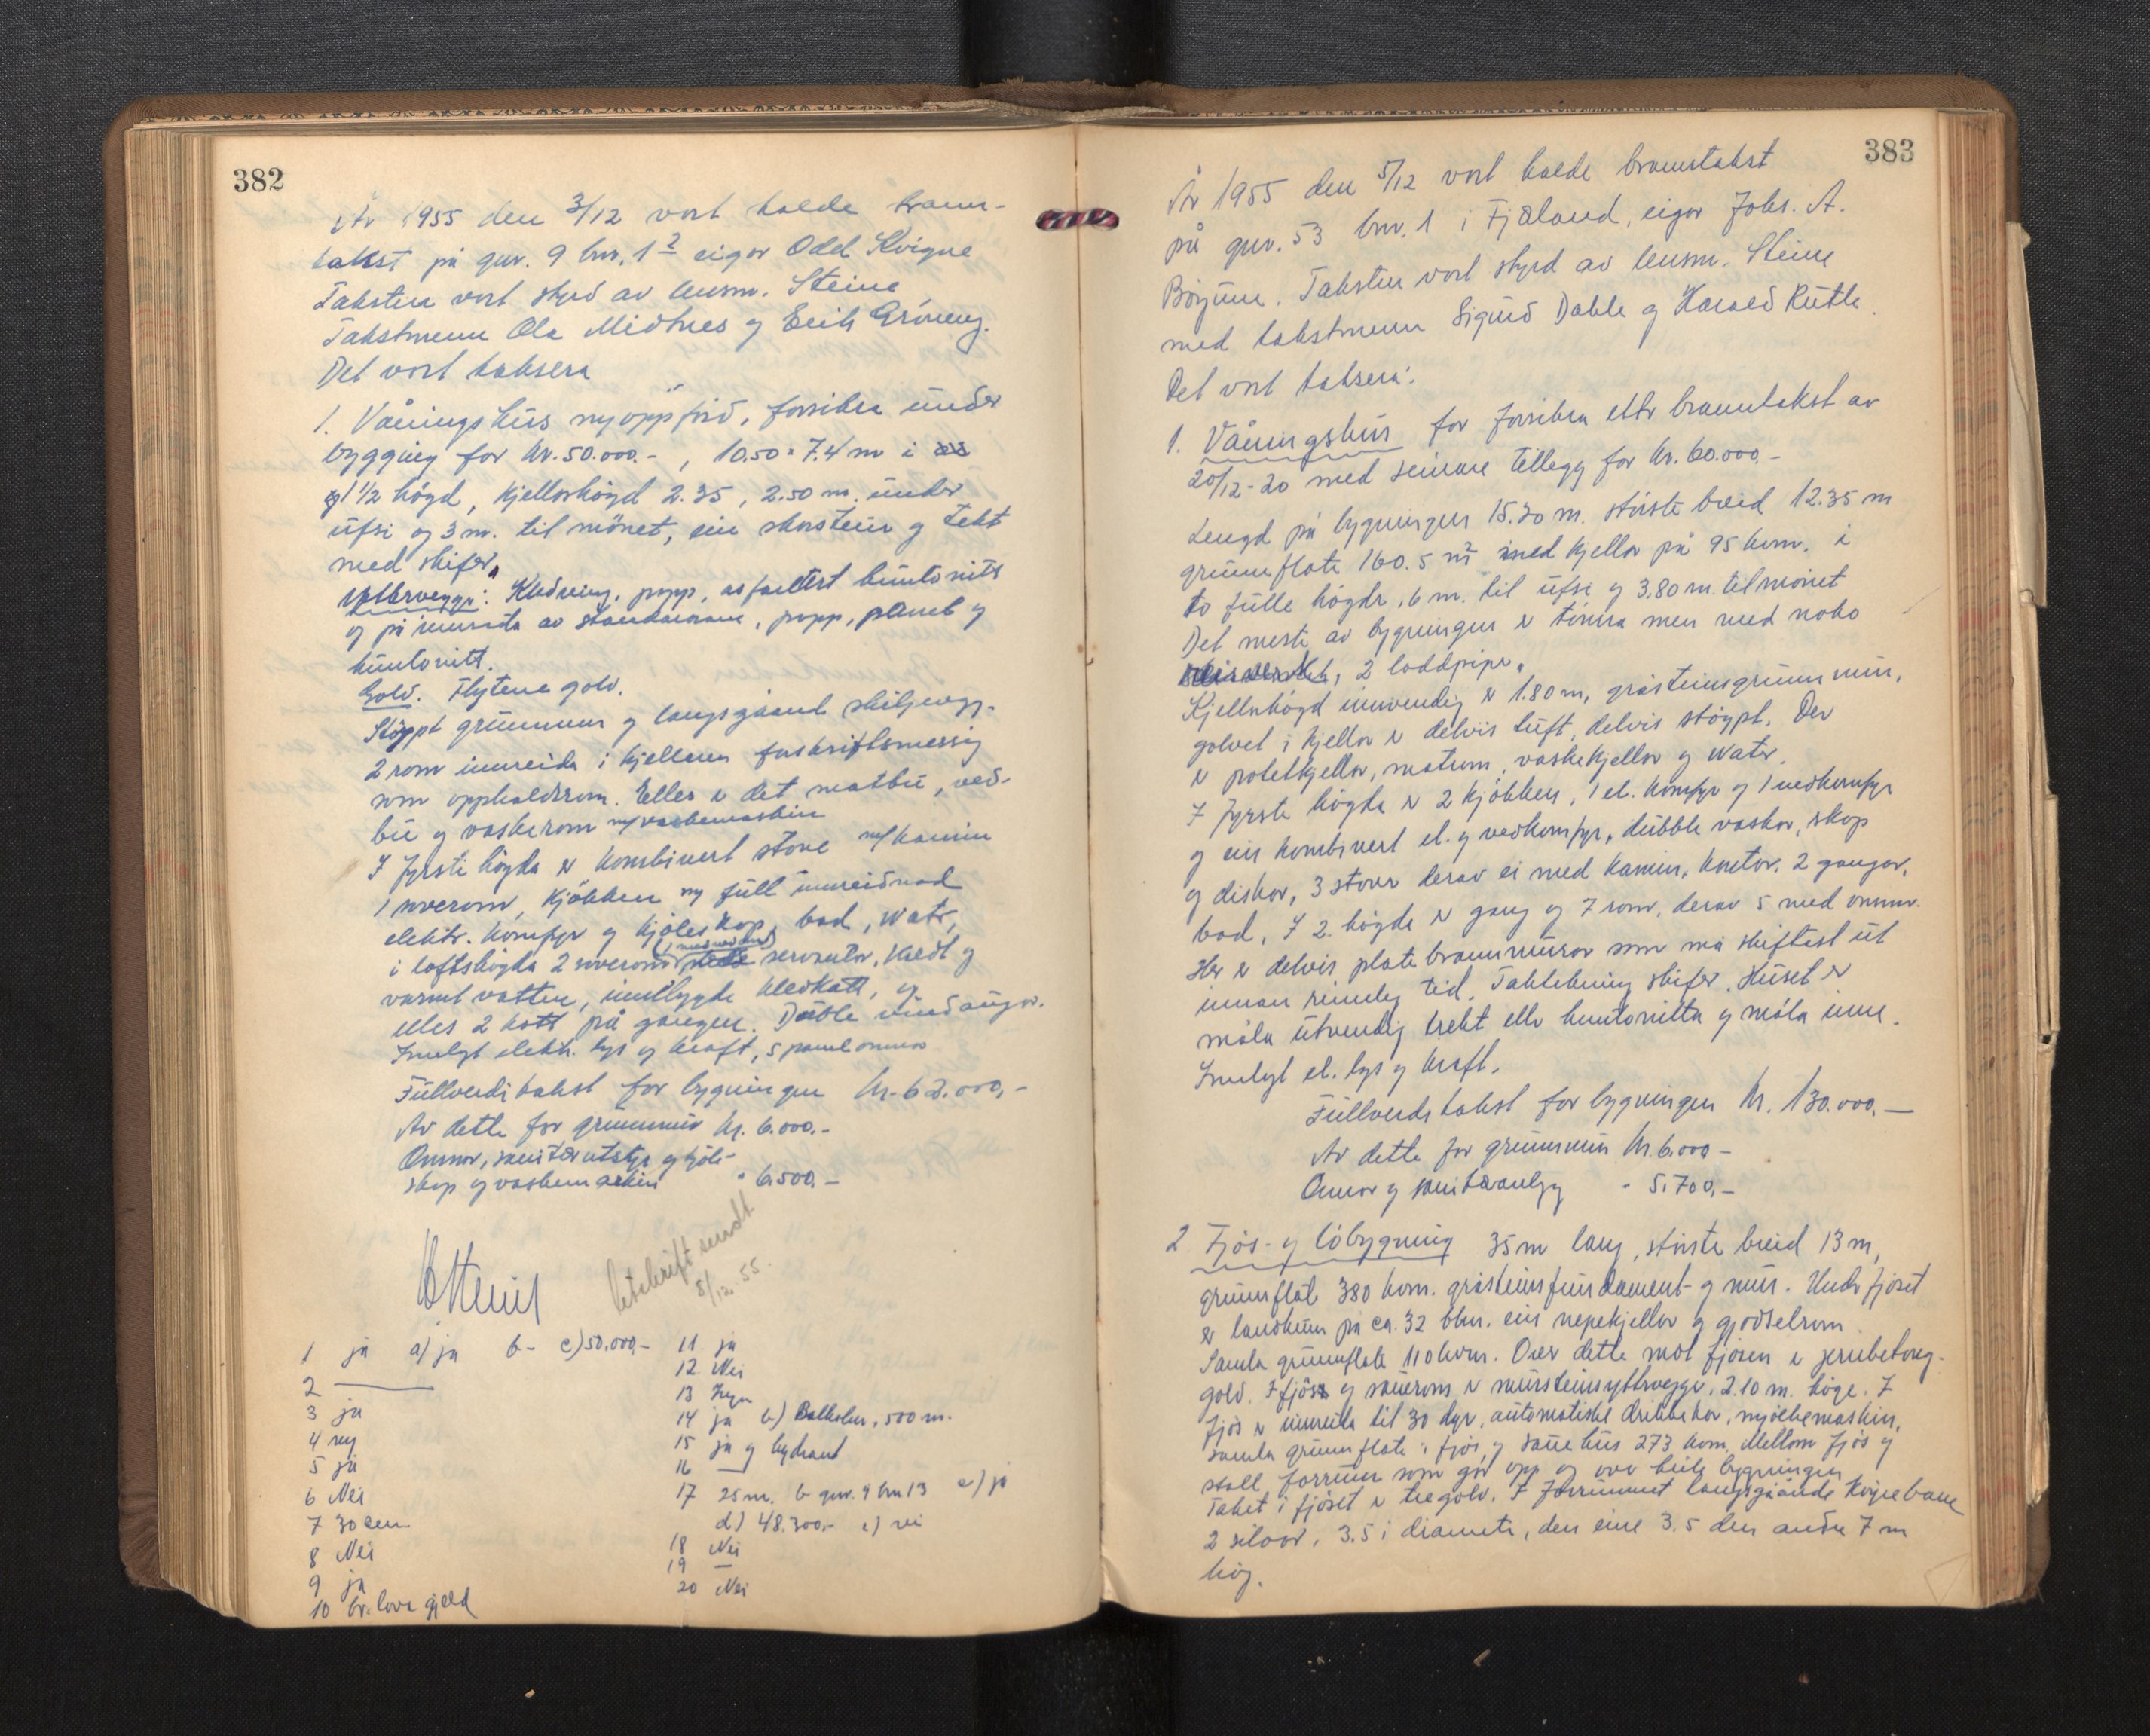 382
År 1955 den 3/12 vart halde brann-
takst på gnr. 9 bnr. 1² eigar Odd Kvigne
Taksten vart styrd av lensm. Steine
Takstmenn Ola Midtnes og Eirik Grøneng.
Det vart taksera
1. Våningshus nyoppförd, forsikra under
bygging for kr. 50.000.- , 10.50 × 7.4 m i
1 1/2 högd, kjellarhögd 2.35, 2.50 m. under
ufsi og 3 m. til mönet, ein skorstein og tekt
med skifer.
Ytterveggi: Kledning, papp, asfaltert huntonitt
og på innsida av standarane, papp, panel og
huntonitt.
Golv. Flytene golv.
Stöypt grunnmur og langsgåande skiljevegg.
2 rom innreida i kjellaren forskriftsmessig
som oppholdsrom. Elles er det matbu, ved-
bu og vaskerom m/vaskemaskin
I fyrste högda er kombinert stove m/kamin
1 soverom, kjökken m/ full innreidnad
elektr. komfyr og kjöleskap, bad, Water,
i loftshögda 2 soverom servantar, kaldt og
varmt vatten, innbygde kledkott, og
elles 2 kott på gangen. Duble vindaugor.
Innlagt elektr. lys og kraft, 5 panelomnar
Fullverditakst for bygningen kr. 62.000,-
Av dette for grunnmur kr. 6.000.-
Omnar, sanitærutstyr og kjöle-
skap og vaskemaskin " 6.500.-
Steine
Utskrift sendt
5/12.55.
1 ja a) ja b - c) 50.000,-
2 —
3 ja
4 ny
5 ja
6 Nei
7 30 cm
8 Nei
9 ja
10 br. lova gjeld
11 ja
12 Nei
13 Ingen
14 ja b) 500 m.
15 ja og hydrant
16 —
17 25 m. b gnr. 9 bnr 13 c) ja
d) 48.300,- e) nei
18 Nei
19 —
20 Nei
383
År 1955 den 5/12 vart halde branntakst
på gnr. 53 bnr. 1 i Fjæland, eigar Johs. A.
Böyum. Taksten vart styrd av lensm. Steine
med takstmenn Sigurd Dahle og Harald Rutle.
Det vart taksera:
1. Våningshus for forsikra etter branntakst av
20/12-20 med seinare tillegg for kr. 60.000.-
Lengd på bygningen 15.30 m. störste breid 12.35 m
grunnflate 160.5 m² med kjellar på 95 kvm. i
to fulle högder, 6 m. til ufsi og 3.80 m. til mönet
Det meste av bygningen er timra men med noko
reisverk, 2 loddpiper.
Kjellarhögd innvendig er 1.80 m, gråsteinsgrunnmur,
golvet i kjellar er delvis tuft, delvis stöypt. Der
er potetkjellar, matrom, vaskekjellar og Water.
I fyrste högda er 2 kjökken, 1 el. komfyr og 1 vedkomfyr
og ein kombinert el. og vedkomfyr, dubble vaskar, skap
og diskar, 3 stover derav ei med kamin, kontor, 2 gangar,
bad. I 2. högda er gang og 7 rom, derav 5 med omnar.
Her er delvis plate brannmurar som må skiftast ut
innan rimeleg tid. Taktekning skifer. Huset er
måla utvendig, trekt eller huntonitta og måla inne.
Innlagt el. lys og kraft.
Fullverditakst for bygningen kr. 130.000,-
Av dette for grunnmur kr. 6.000 -
Omnar og sanitæranlegg " 5.700,-
2. Fjös- og löbygning 35 m lang, störste breid 13 m,
grunnflate 380 kvm. gråsteinsfundament- og mur. Under fjöset
er landkum på ca. 32 kbm. ein nepekjellar og gjödselrom
Samla grunnflate 110 kvm. Over dette mot fjösen er jernbetong-
golv. I fjös og sauerom er mursteinsytterveggar, 2.10 m. höge. I
fjös er innreida til 30 dyr, automatiske drikkekar, mjölkemaskin,
samla grunnflate i fjös og sauehus 273 kvm. Mellom fjös og
stall forrum som går opp og over heile bygningen
Taket i fjöset er tregolv. I forrummet langsgåande köyrebane
2 siloar, 3.5 i diameter, den eine 3.5 den andre 7 m
hög.